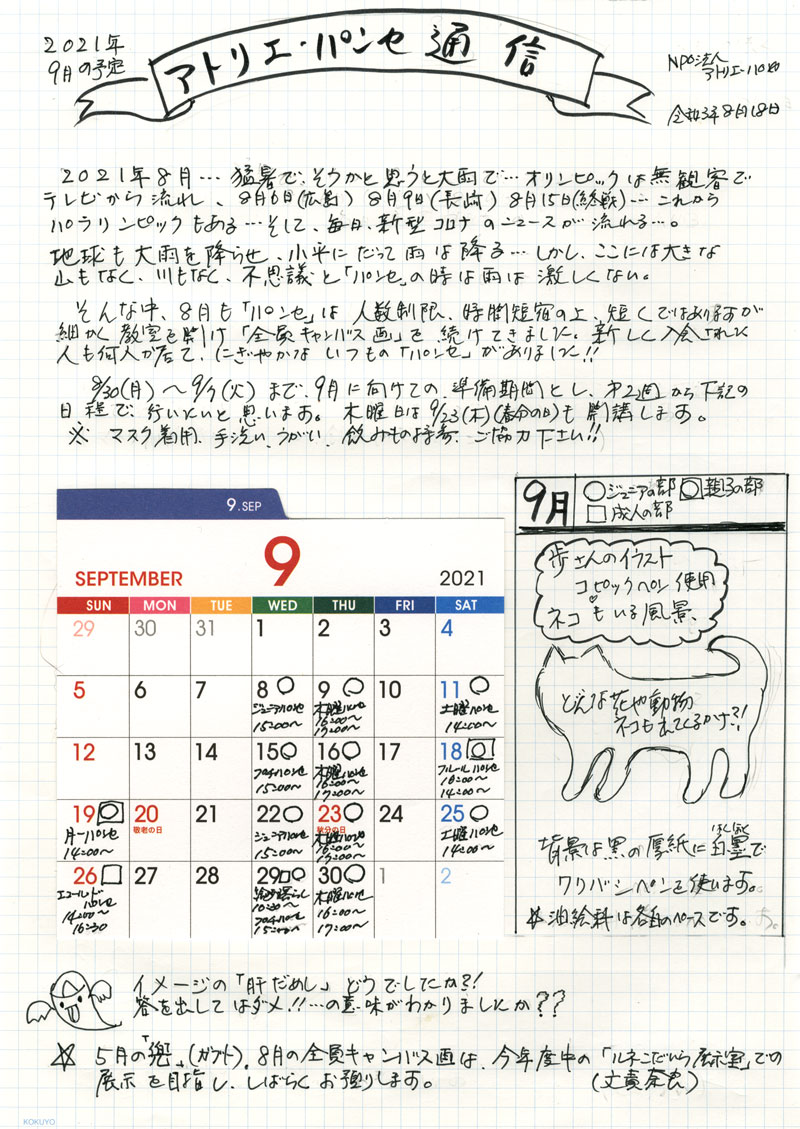 2021年
9月の予定
アトリエ・パンセ 通信
NPO法人
アトリエ・パンセ
令和3年8月18日
2021年8月… 猛暑で、そうかと思うと大雨で… オリンピックは無観客で
テレビから流れ、8月6日(広島) 8月9日(長崎) 8月15日(終戦)… これから
パラリンピックもある… そして、毎日、新型コロナのニュースが流れる…。
地球も大雨を降らせ、小平にだって雨は降る… しかし、ここには大きな
山もなく、川もなく、不思議と「パンセ」の時は雨は激しくない。
そんな中、8月も「パンセ」は人数制限、時間短縮の上、短くではありますが
細かく教室を開け「全員キャンバス画」を続けてきました。新しく入会された
人も何人か居て、にぎやかな いつもの「パンセ」がありました!!
8/30(月)〜9/7(火)まで、9月に向けての準備期間とし、第2週から下記の
日程で行いたいと思います。木曜日は9/23(木)(春分の日)も開講します。
※ マスク着用、手洗い、うがい、飲みもの持参、ご協力下さい!!
9.SEP
9
SEPTEMBER 2021
SUN MON TUE WED THU FRI SAT
29 30 31 1 2 3 4
5 6 7 8 9 10 11
ジュニアパンセ 15:00〜
木曜パンセ 16:00〜 17:00〜
土曜パンセ 14:00〜
12 13 14 15 16 17 18
プチパンセ 15:00〜
木曜パンセ 16:00〜 17:00〜
フルールパンセ 10:00〜 14:00〜
19 20 21 22 23 24 25
月一パンセ 14:00〜
敬老の日
ジュニアパンセ 15:00〜
秋分の日
木曜パンセ 16:00〜 17:00〜
土曜パンセ 14:00〜
26 27 28 29 30 1 2
エコールドパンセ 14:00〜 16:30
10:30〜
プチパンセ 15:00〜
木曜パンセ 16:00〜 17:00〜
9月
ジュニアの部 親子の部
成人の部
歩さんのイラスト
コピックペン使用
ネコもいる風景、
どんな花や動物
ネコもえてくるかナ?!
背景は黒の厚紙に白墨(はくぼく)で
ワリバシペンを使います。
☆油絵料は各自のペースです。
イメージの「肝だめし」どうでしたか?!
答を出してはダメ!!…の意味がわかりましたか??
☆ 5月の「兜」(ガラト)、8月の全員キャンバス画は、今年度中の「ルネこだいら展示室」での
展示を目指し、しばらくお預りします。
(文責奈良)
KOKUYO